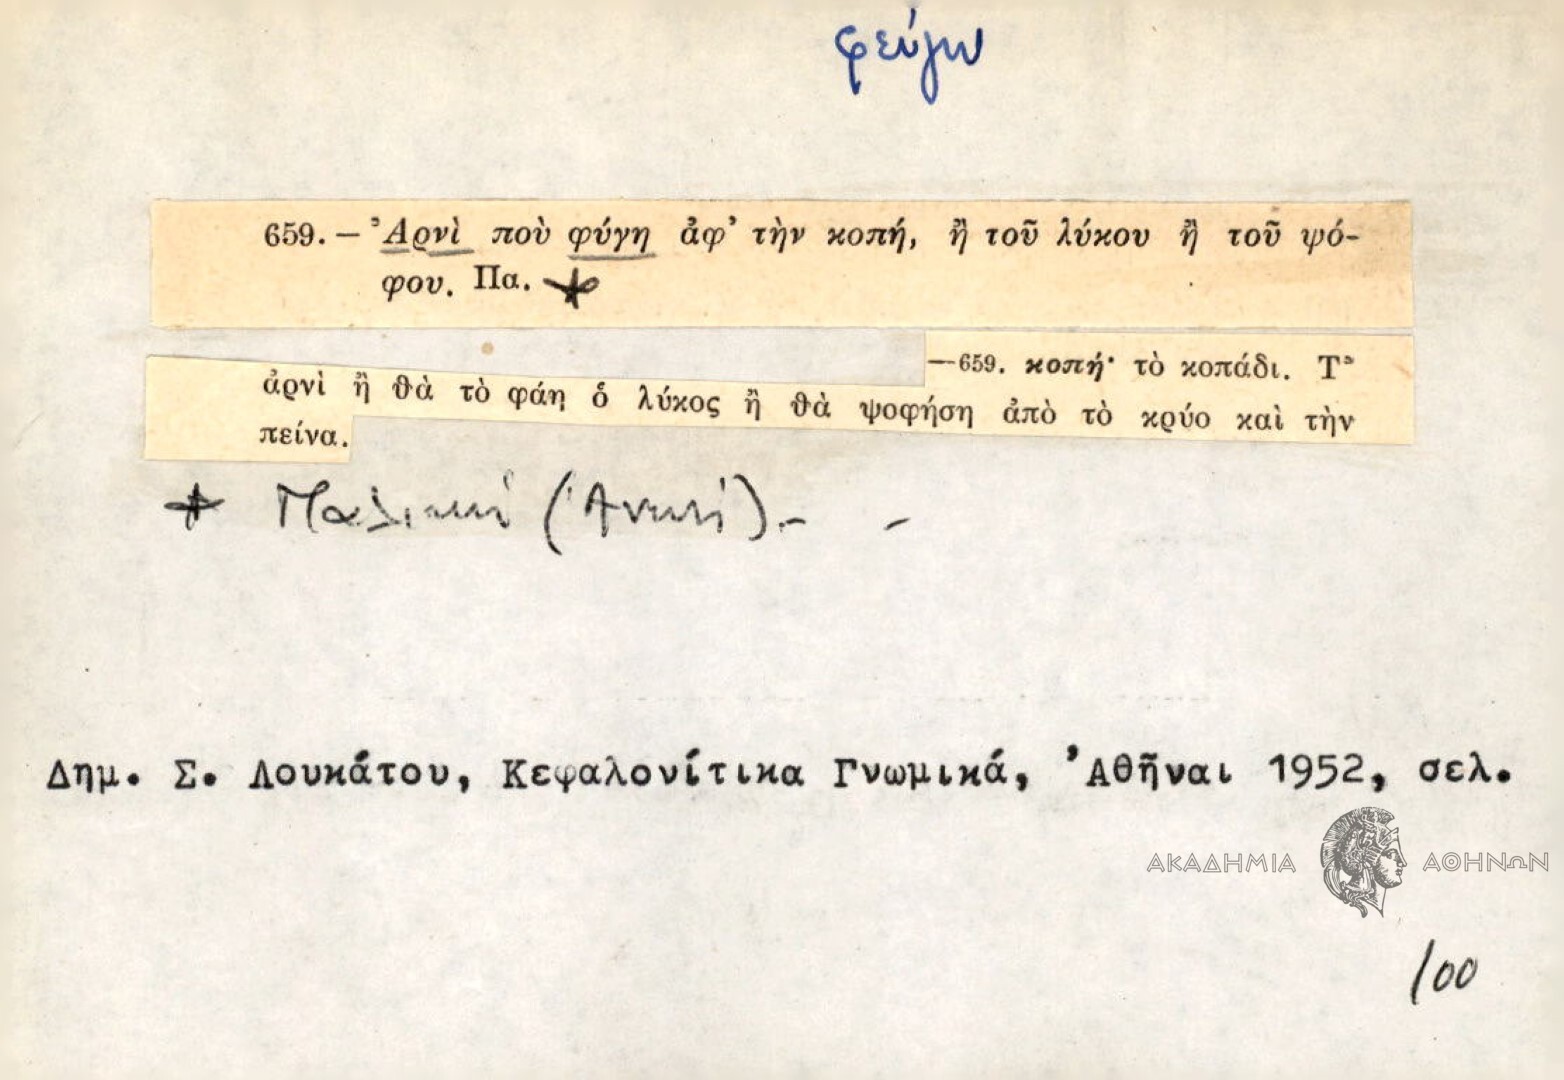 φεύγω
659. – Ἀρνὶ ποὺ φύγῃ ἀφ’ τὴν κοπή, ἢ τοῦ λύκου ἢ τοῦ ψό-
φου. Πα.
—659. κοπή· τὸ κοπάδι. Τ’
ἀρνὶ ἢ θὰ τὸ φάῃ ὁ λύκος ἢ θὰ ψοφήσῃ ἀπὸ τὸ κρύο καὶ τὴν
πείνα.
Παλική (Ἀνωή).-
Δημ. Σ. Λουκάτου, Κεφαλονίτικα Γνωμικά, Ἀθῆναι 1952, σελ.
ΑΚΑΔΗΜΙΑ ΑΘΗΝΩΝ
100